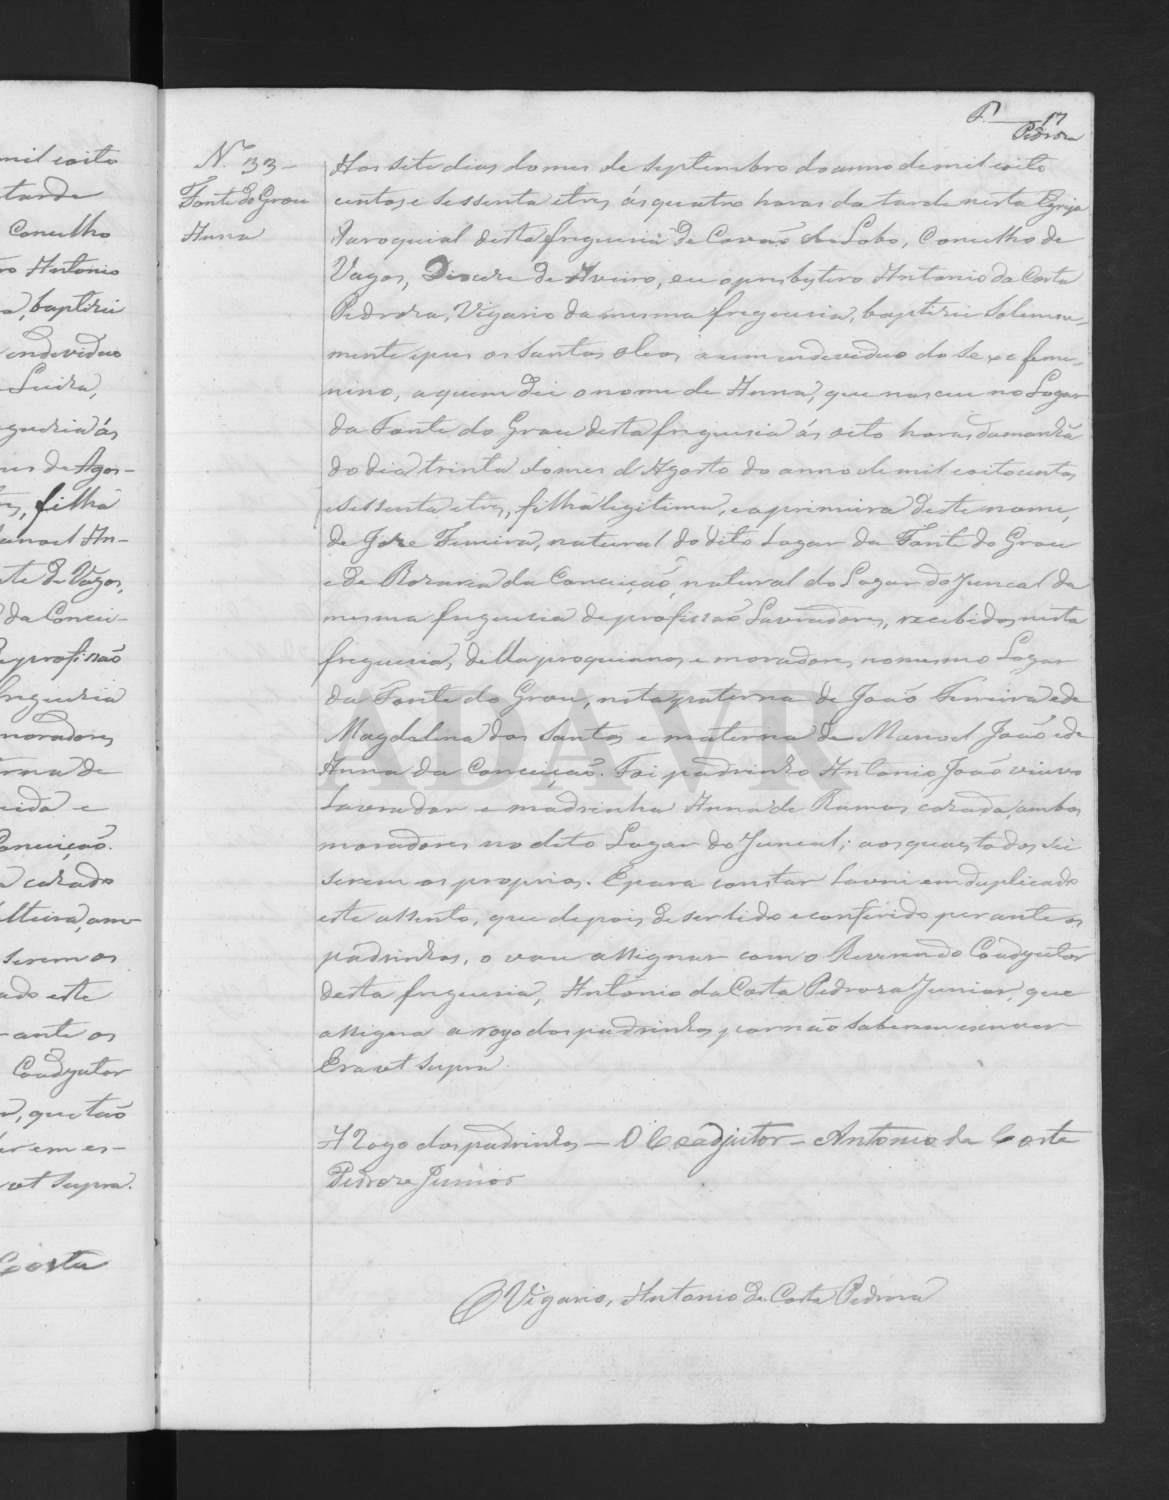 P. 17
Pedroza
N.º 33-
Fonte do Grou
Anna
Aos sete dias do mes de septembro do anno de mil oito
centos e sessenta e tres, ás quatro horas da tarde nesta Egreja
Paroquial desta freguesia de Covaõ do Lobo, Concelho de
Vagos, Diocese de Aveiro, eu o presbytero Antonio da Costa
Pedroza, Vigario da mesma freguesia, baptizei solemne-
mente e pus os santos oleos a um individuo do sexo femi-
nino, a quem dei o nome de Anna, que nasceu no Logar
da Fonte do Grou desta freguesia ás oito horas da manhã
do dia trinta do mes d'Agosto do anno de mil oitocentos
e sessenta e tres, filha legitima, e a primeira deste nome,
de Joze Ferreira, natural do dito Logar da Fonte do Grou
e de Rozaria da Conceiçaõ, natural do Logar do Juncal da
mesma freguesia de profissaõ Lavradores, recebidos nesta
freguesia, della paroquianos e moradores no mesmo Logar
da Fonte do Grou, neta paterna de Joaõ Ferreira e de
Magdalena dos Santos e materna de Manoel Joaõ e de
Anna da Conceiçaõ. Foi padrinho Antonio Joaõ viuvo
Lavrador e madrinha Anna de Ramos cazada, ambos
moradores no dito Logar do Juncal; aos quaes todos sei
serem os proprios. E para constar lavrei em duplicado
este assento, que depois de ser lido e conferido perante os
padrinhos, o vou assignar com o Reverendo Coadjutor
desta freguesia, Antonio da Costa Pedroza Junior, que
assigna a rogo dos padrinhos por não saberem escrever
Era ut supra
A Rogo dos padrinhos — O Coadjutor — Antonio da Costa
Pedroza Junior
O Vigario, Antonio da Costa Pedroza
mil oito
tarde
Concelho
Antonio
baptizei
endeviduo
Luiza,
ás
mes de Agos-
filha
anoel An-
te de Vagos,
da Concei-
profissão
freguesia
moradores
de
e
Conceiçaõ.
cazado
serem os
ado este
ante os
Coadjutor
que taõ
rem es-
ut supra.
Costa
ADAVR